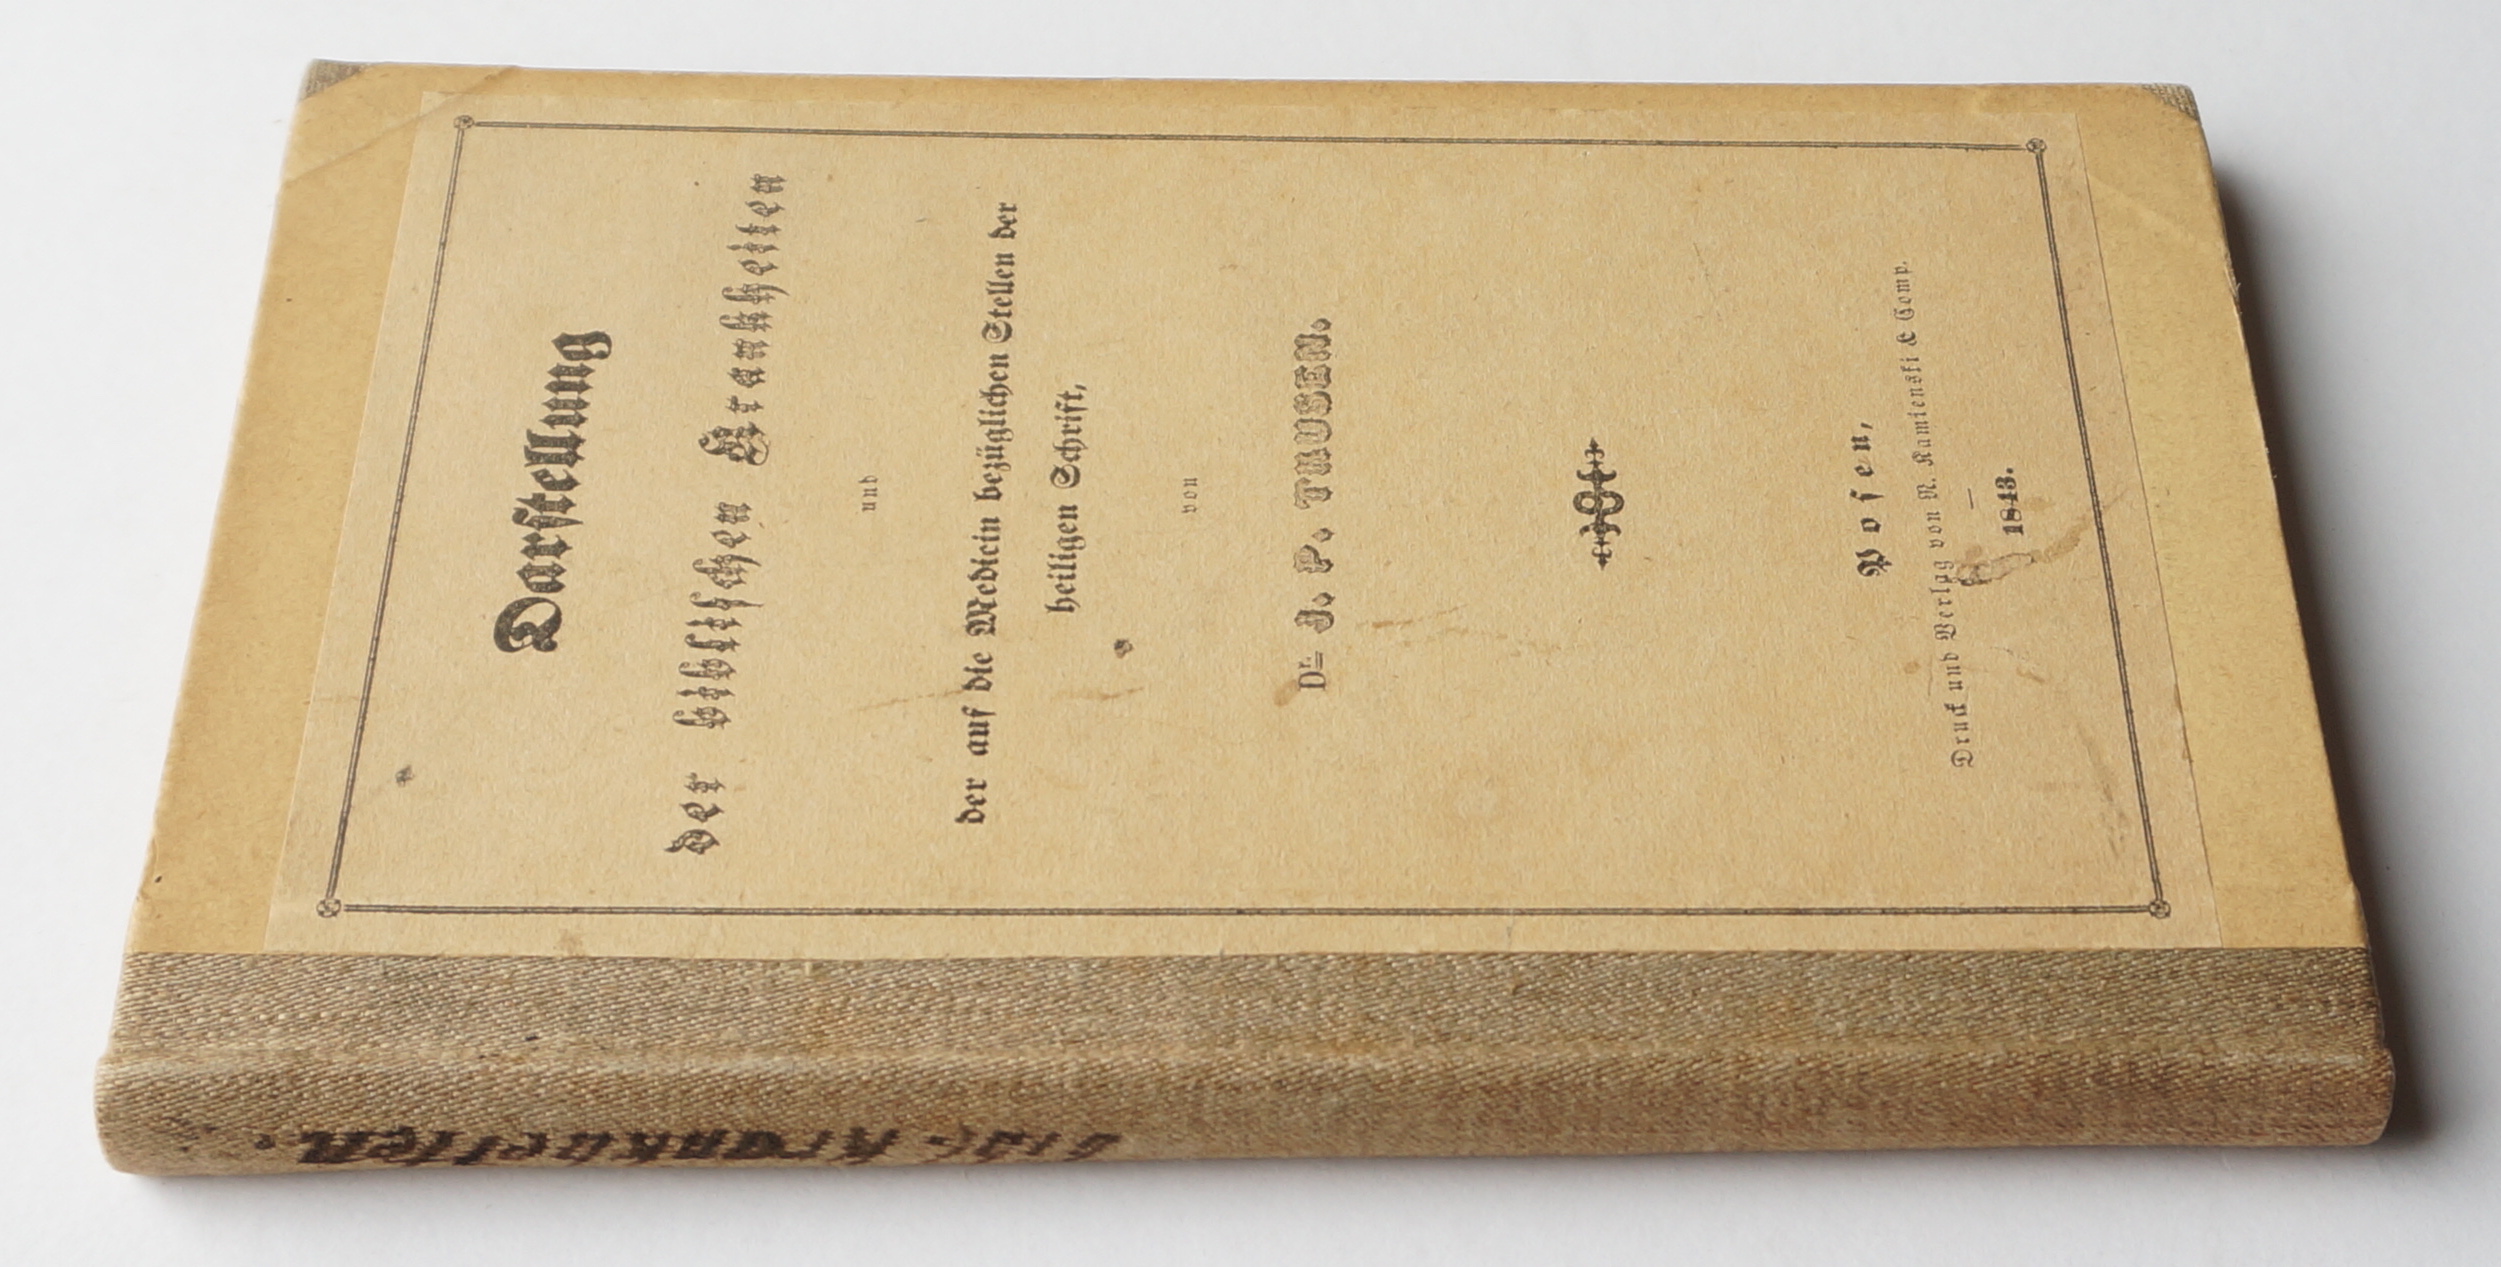 Darstellung
der biblischen Krankheiten
und
der auf die Medicin bezüglichen Stellen der
heiligen Schrift,
von
Dr J. P. TRUSEN.
Posen,
Druck und Verlag von N. Kamienski & Comp.
1843.
Krankheiten.